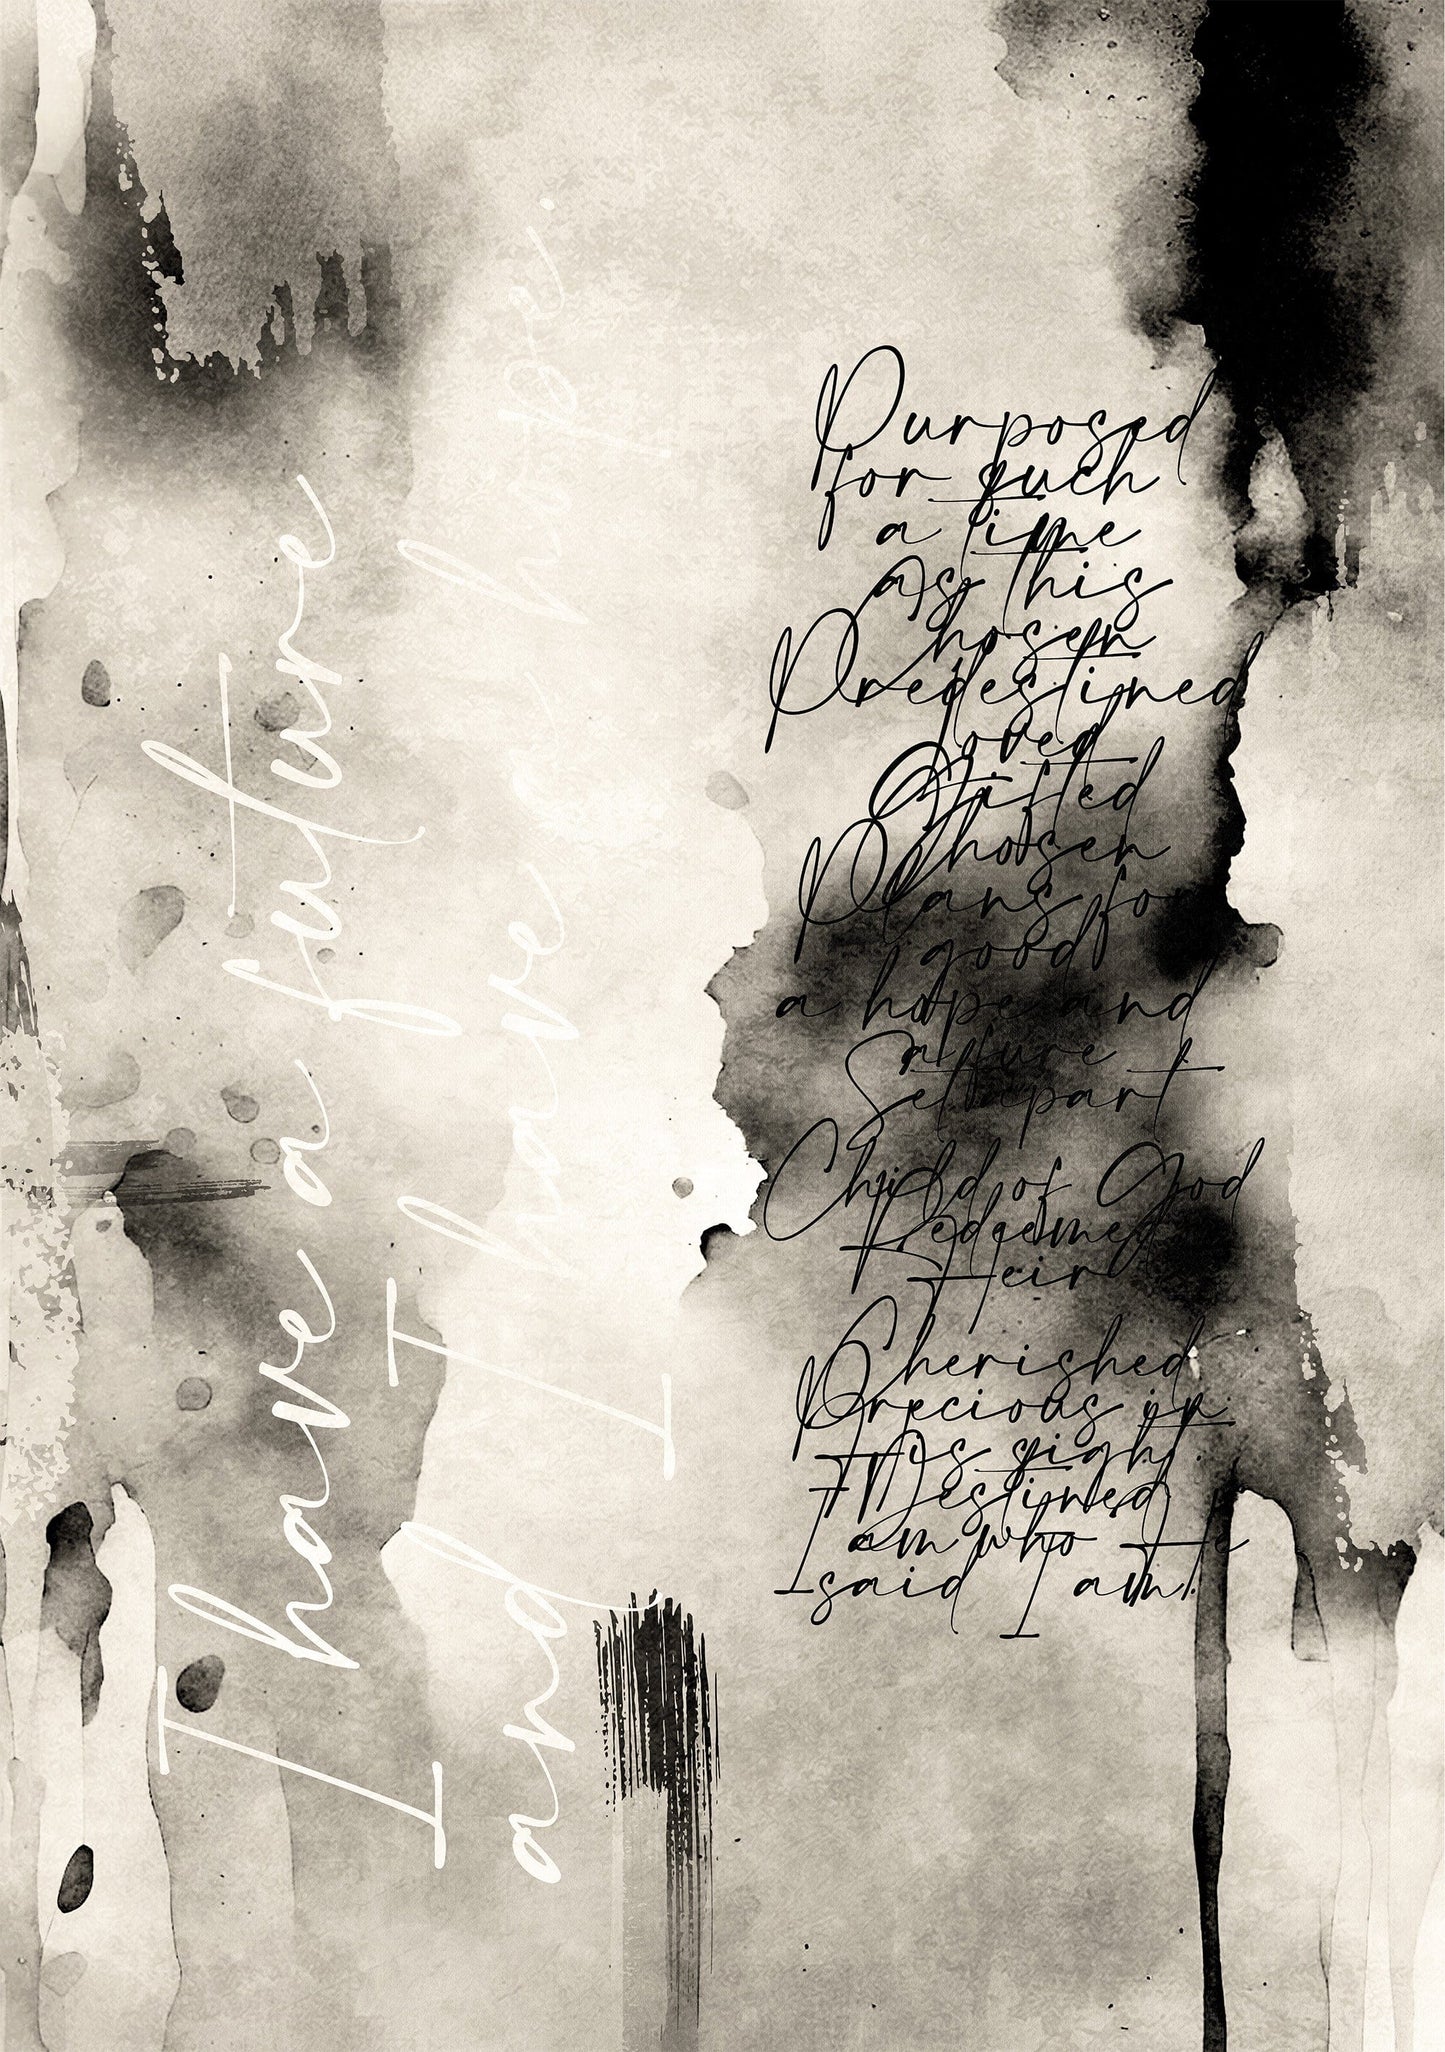 I have a future
and I have a hope.
Purposed
for such
a time
as this
Chosen
Predestined
loved
Gifted
Chosen
Plans for
good
a hope and
a fure
Set apart
Child of God
Redeemed
Heir
Cherished
Precious in
His sight.
Destined
I am who He
said I am.